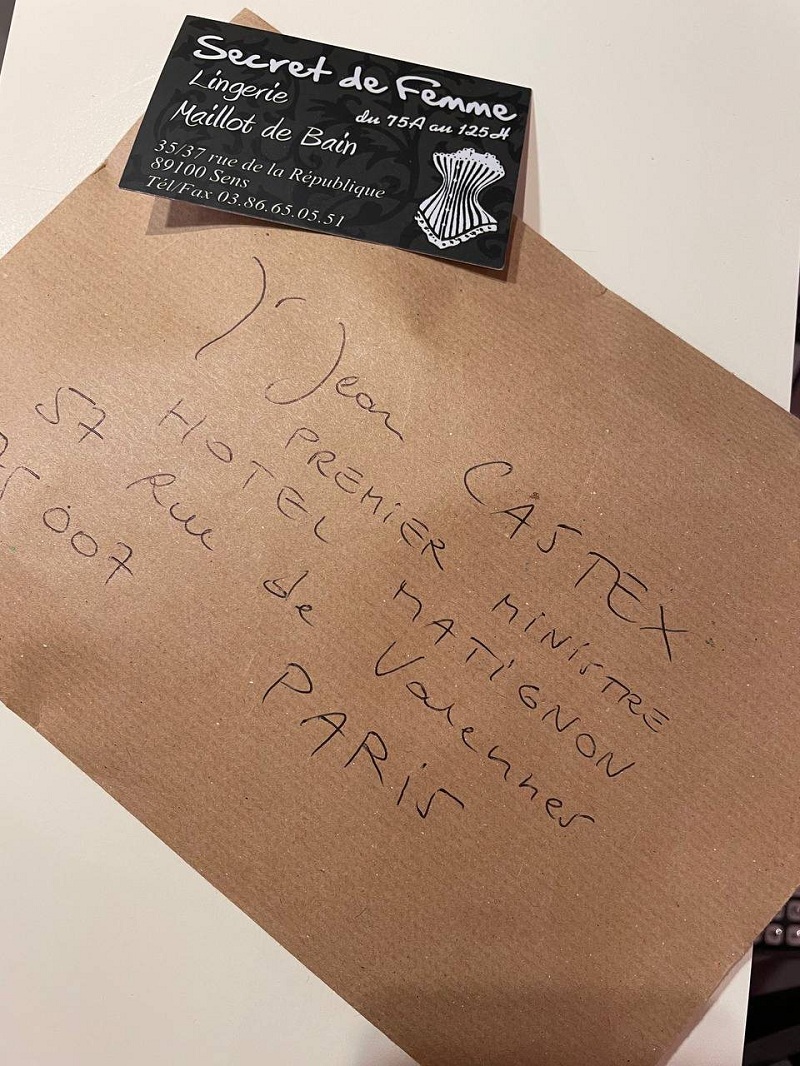 Secret de Femme
Lingerie
du 75A au 125H
Maillot de Bain
35/37 rue de la République
89100 Sens
Tél/Fax 03.86.65.05.51
Mr Jean CASTEX
PREMIER MINISTRE
HOTEL MATIGNON
57 Rue de Varennes
75007 PARIS